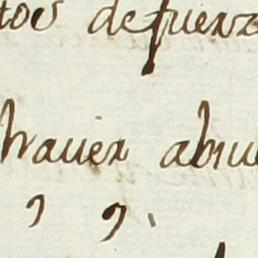 tos defuerz
hauer abiu